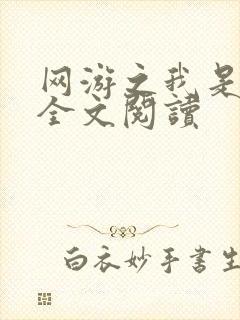 网游之我是
全文閱讀
白衣妙手書生